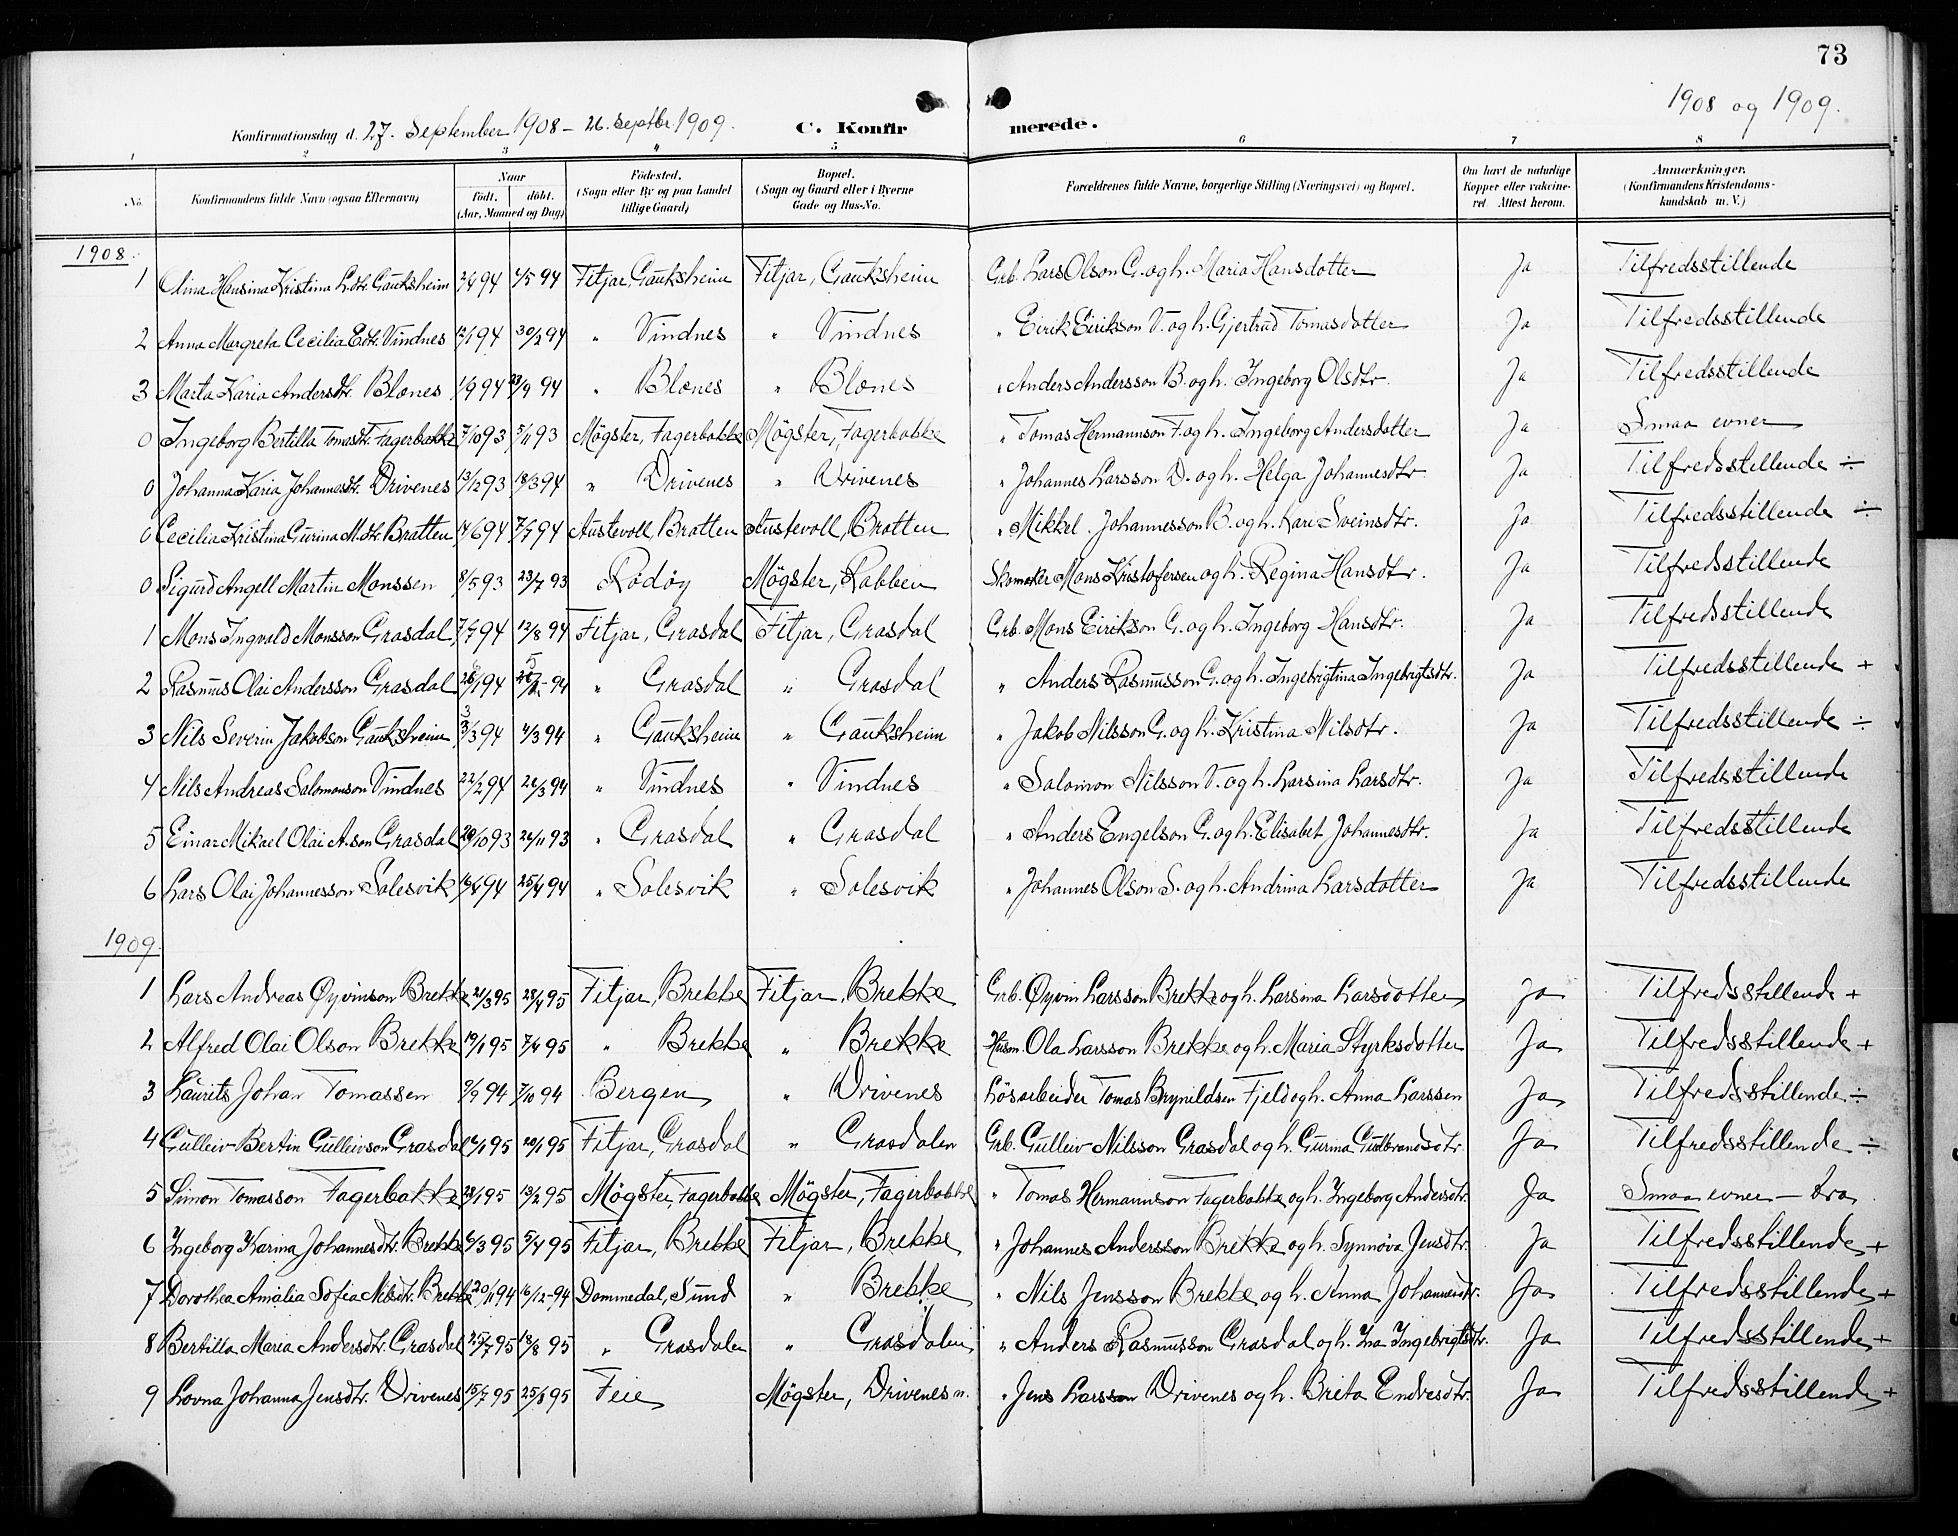 73
1908 og 1909.
Konfirmationsdag d. 27. September 1908 – 26. Septbr. 1909. C. Konfirmerede.
1 2 3 4 5 6 7 8
No. Konfirmandens fulde Navn (ogsaa Efternavn) Naar født. døbt. (Aar, Maaned og Dag) Fødested. (Sogn eller By og paa Landet tillige Gaard) Bopæl. (Sogn og Gaard eller i Byerne Gade og Hus-No. Forældrenes fulde Navne, borgerlige Stilling (Næringsvei) og Bopæl. Om havt de naturlige Kopper eller vakcineret. Attest herom. Anmærkninger. (Konfirmandens Kristendomskundskab m. V.)
1908.
1 Olina Hansina Kristina L.dtr. Gauksheim 2/4 94 /5 94 Fitjar, Gauksheim Fitjar, Gauksheim Grb. Lars Olson G. og h. Maria Hansdotter Ja Tilfredsstillende
2 Anna Margreta Cecilia E.dtr. Vindnes 12/1 94 30/2 94 " Vindnes " Vindnes " Eirik Eirikson V. og h. Gjertrud Tomasdotter Ja Tilfredsstillende
3 Marta Karia Andersdtr. Blones 1/9 94 23/9 94 " Blones " Blones " Anders Andersson B. og h. Ingeborg Olsdtr. Ja Tilfredsstillende
0 Ingeborg Bertilla Tomasdtr. Fagerbakke 7/10 93 5/11 93 Møgster, Fagerbakke Møgster, Fagerbakke " Tomas Hermannson F. og h. Ingeborg Andersdotter Ja Smaa evner
0 Johanna Karia Johannesdtr. Drivenes 13/12 93 18/3 94 " Drivenes " Drivenes " Johannes Larsson D. og h. Helga Johannesdtr Ja Tilfredsstillende ÷
0 Cecilia Kristina Gurina M.dtr. Bratten 14/6 94 7/7 94 Austevoll, Bratten Austevoll, Bratten " Mikkel Johannesson B. og h. Kari Sveinsdtr. Ja Tilfredsstillende ÷
0 Sigurd Angell Martin Monssen 8/5 93 23/7 93 Rødøy Møgster, Rabben Skomaker Mons Kristofersen og h. Regina Hansdtr. Ja Tilfredsstillende
1 Mons Ingvald Monsson Grasdal 7/7 94 12/8 94 Fitjar, Grasdal Fitjar, Grasdal Grb. Mons Eirikson G. og h. Ingeborg Hansdtr. Ja Tilfredsstillende
2 Rasmus Olai Andersson Grasdal 94 94 " Grasdal " Grasdal " Anders Rasmusson G. og h. Ingebrigtina Ingebrigtsdtr. Ja Tilfredsstillende +
3 Nils Severin Jakobson Gauksheim 3/3 94 4/3 94 " Gauksheim " Gauksheim " Jakob Nilsson G. og h. Kristina Nilsdtr. Ja Tilfredsstillende ÷
4 Nils Andreas Salomonson Vindnes 22/2 94 26/3 94 " Vindnes " Vindnes " Salomon Nilsson V. og h. Larsina Larsdtr. Ja Tilfredsstillende
5 Einar Mikael Olai A.son Grasdal 20/10 93 26/11 93 " Grasdal " Grasdal " Anders Engelson G. og h. Elisabet Johannesdtr. Ja Tilfredsstillende
6 Lars Olai Johannesson Solesvik 10/4 94 25/4 94 " Solesvik " Solesvik " Johannes Olson S. og h. Andrina Larsdotter Ja Tilfredsstillende
1909.
1 Lars Andreas Øyvinson Brekke 21/3 95 28/4 95 Fitjar, Brekke Fitjar, Brekke Grb. Øyvin Larsson Brekke og h. Larsina Larsdotter Ja Tilfredsstillende +
2 Alfred Olai Olson Brekke 19/1 95 7/4 95 " Brekke " Brekke Husm. Ola Larsson Brekke og h. Maria Styrksdotter Ja Tilfredsstillende +
3 Laurits Johan Tomassen 9/9 94 7/10 94 Bergen " Drivenes Løsarbeider Tomas Brynildsen Fjeld og h. Anna Larssen Ja Tilfredsstillende ÷
4 Gulleiv Bertin Gulleivson Grasdal 6/1 95 20/1 95 Fitjar, Grasdal " Grasdalen Grb. Gulleiv Nilsson Grasdal og h. Gurina Gudbrandsdtr Ja Tilfredsstillende ÷
5 Simon Tomasson Fagerbakke 28/1 95 13/2 95 Møgster, Fagerbakke Møgster, Fagerbakke " Tomas Hermannson Fagerbakke og h. Ingeborg Andersdtr. Ja Smaa evner – bra
6 Ingeborg Karina Johannesdtr. Brekke 6/3 95 5/4 95 Fitjar, Brekke Fitjar, Brekke " Johannes Andersson Brekke og h. Synnøva Jensdtr. Ja Tilfredsstillende +
7 Dorothea Amalia Sofia Nilsdtr. Brekke 20/11 94 16/12 94 Dommedal, Sund " Brekke " Nils Jensson Brekke og h. Anna Johannesdtr. Ja Tilfredsstillende +
8 Bertilla Maria Andersdtr. Grasdal 25/7 95 13/8 95 " Grasdalen " Grasdalen " Anders Rasmusson Grasdal og h. Ina Ingebrigtsdtr. Ja Tilfredsstillende +
9 Lovna Johanna Jensdtr. Drivenes 15/7 95 25/8 95 Feie Møgster, Drivenes n. " Jens Larsson Drivenes og h. Brita Endresdtr. Ja Tilfredsstillende +